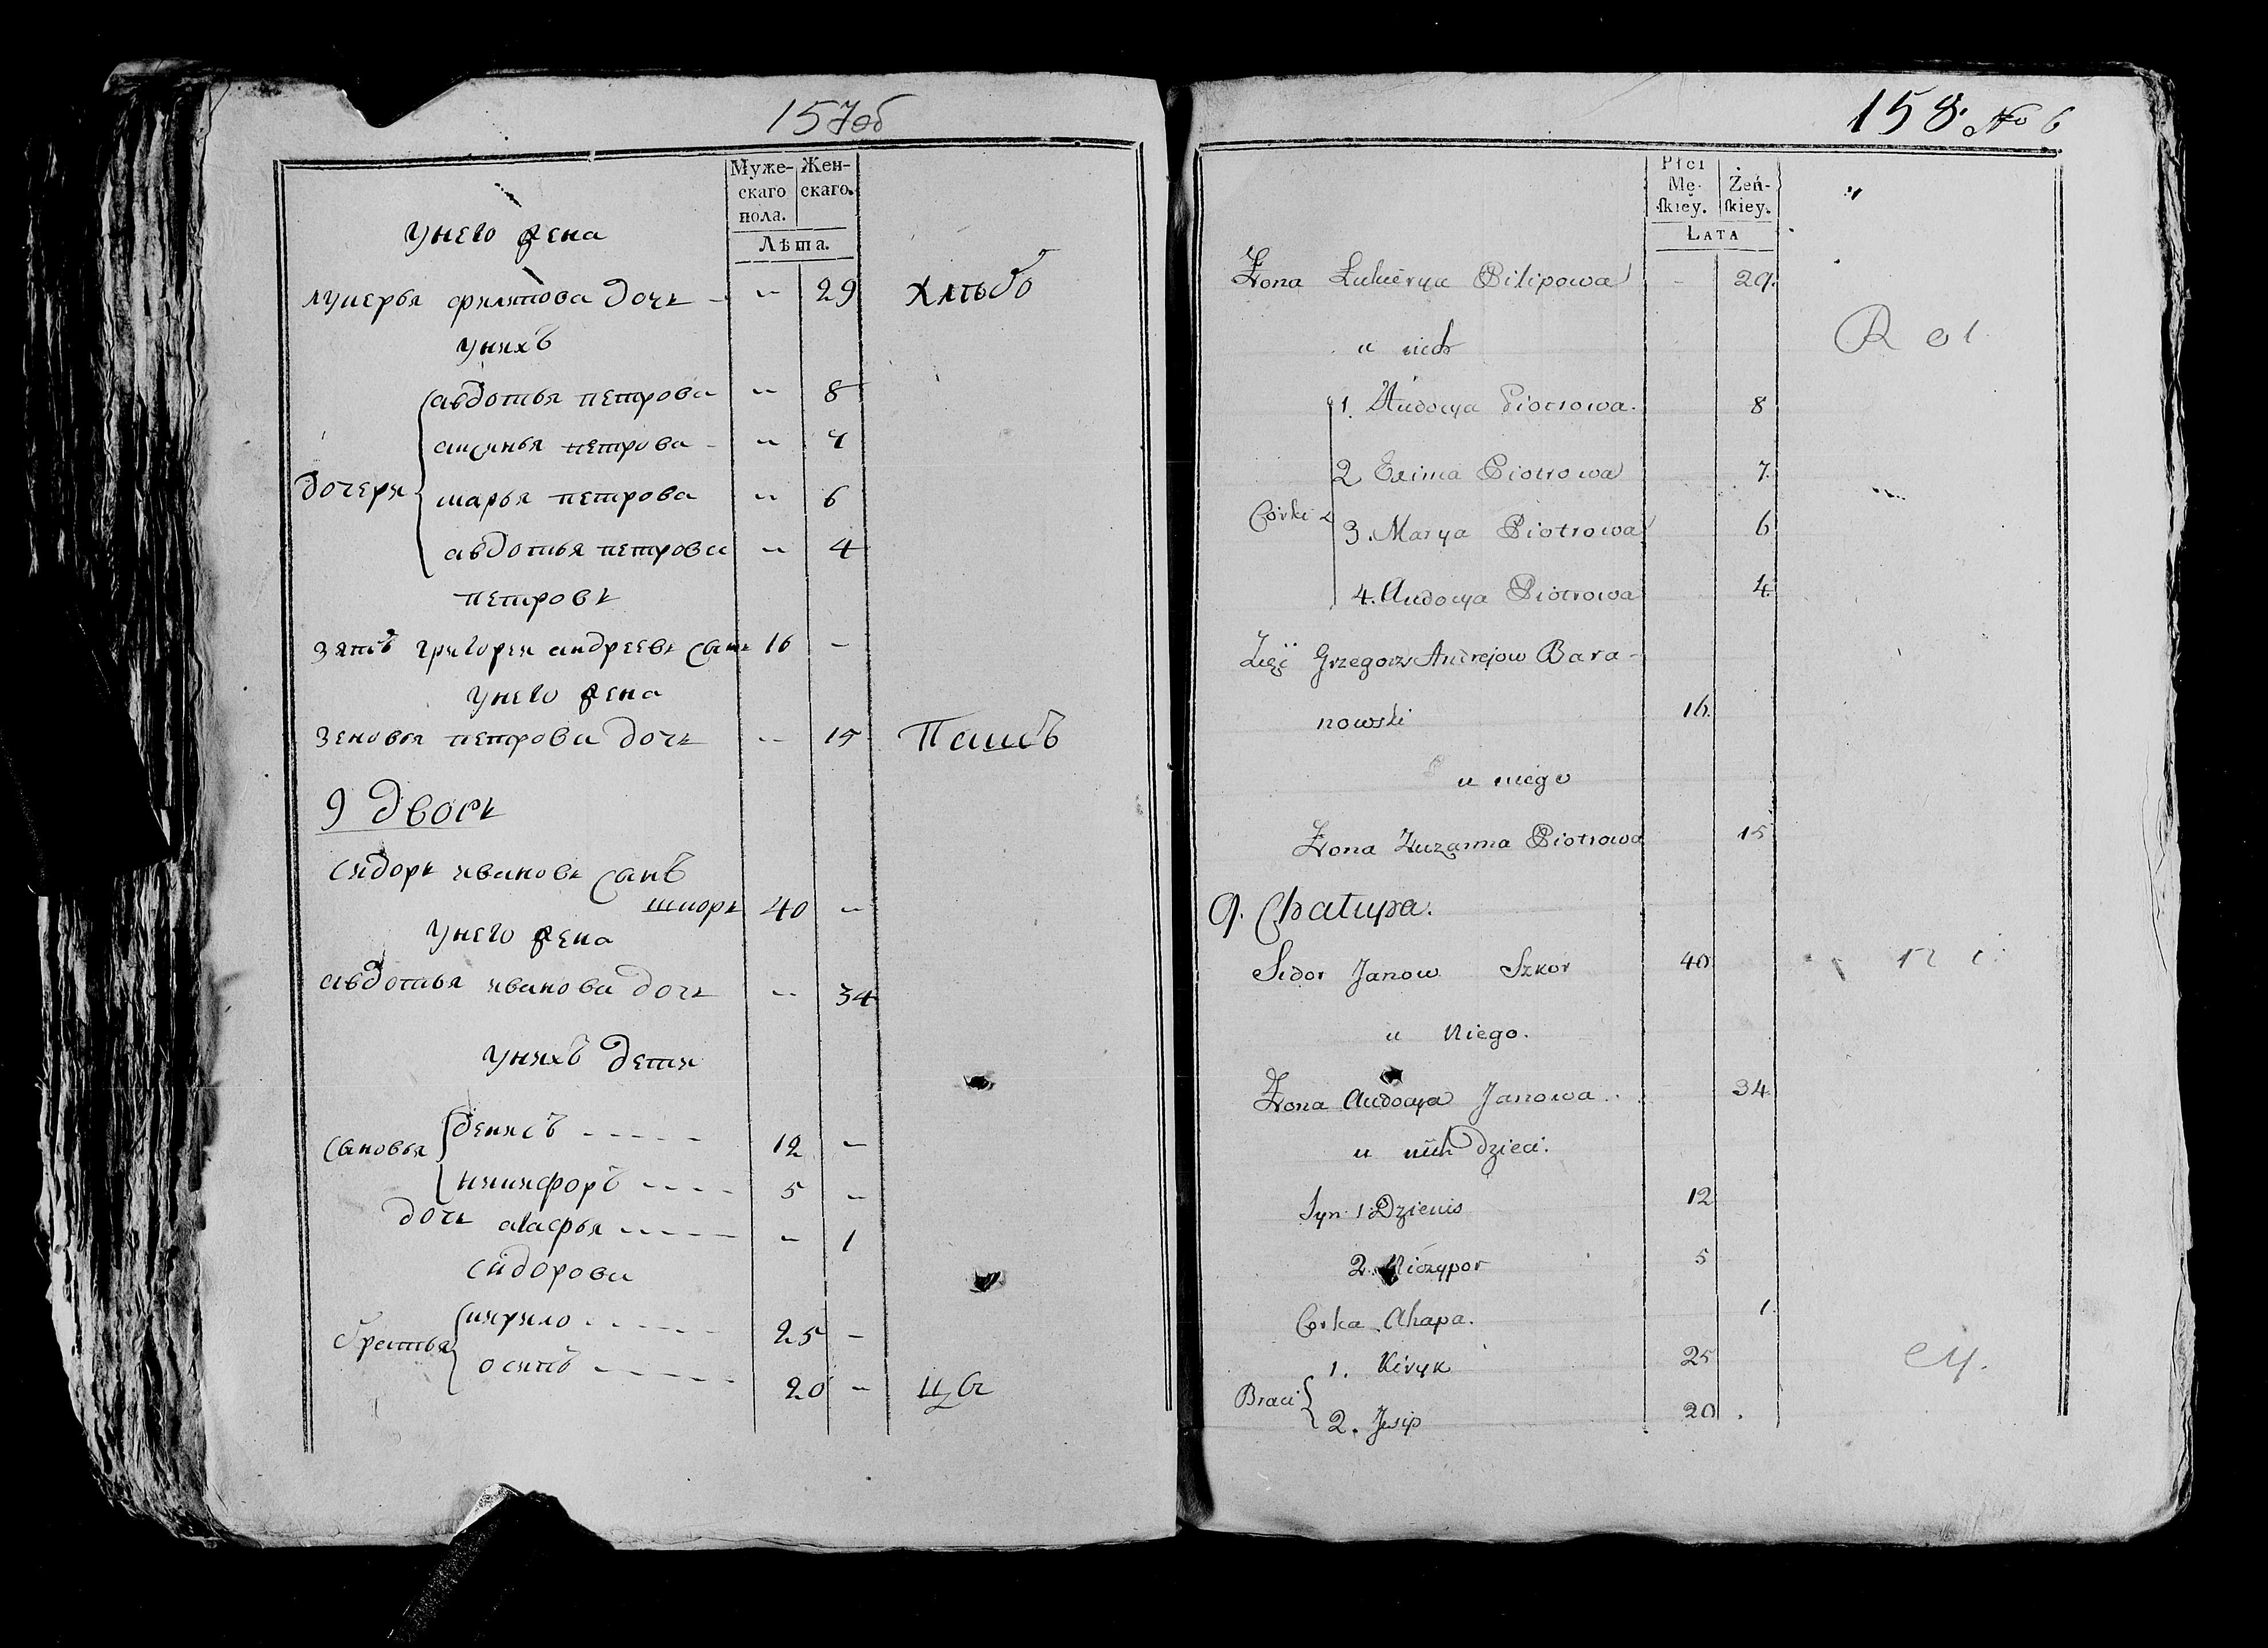 157об
Муже-
скаго
пола.
Жен-
скаго.
Лѣта.
у него жена
лукерья филипова дочь - - 29 хлѣбо
у нихъ
авдотья петрова - 8
аксинья петрова - 7
Дочери марья петрова - 6
авдотья петрова - 4
петровъ
зять григореи андреевъ сынъ 16 -
у него жена
зеновья петрова дочь - 15 Пашъ
9 дворъ
сидоръ ивановъ сынъ
шкоръ 40 -
у него жена
авдотья иванова дочь - 34
у нихъ дети
сыновья денисъ - - - - - 12 -
никифоръ - - - - 5 -
дочь агафья - - - - - - 1
сидорова
братья кирило - - - - - 25 -
осипъ - - - - - - 20 -
158. No 6
Płci
Mę-
skiey.
Żeń-
skiey.
LATA
Żona Łukierya Pilipowa - 29.
u nich
1. Audocya Piotrowa. 8
2 Exima Piotrowa 7.
Córki 3. Marya Piotrowa 6
4. Audocya Piotrowa 4.
Zięć Grzegorz Andrejow Bara-
nowski 16.
u niego
Żona Zuzanna Piotrowa 15
9. Chałupa.
Sidor Janow Szkor 40
u Niego.
Żona Audocya Janowa 34.
u nich Dzieci.
Syn 1. Dzienis 12
2. Niczypor 5
Corka Ahapa. 1.
1. Kiryk 25
Braci
2. Jesip 20 .